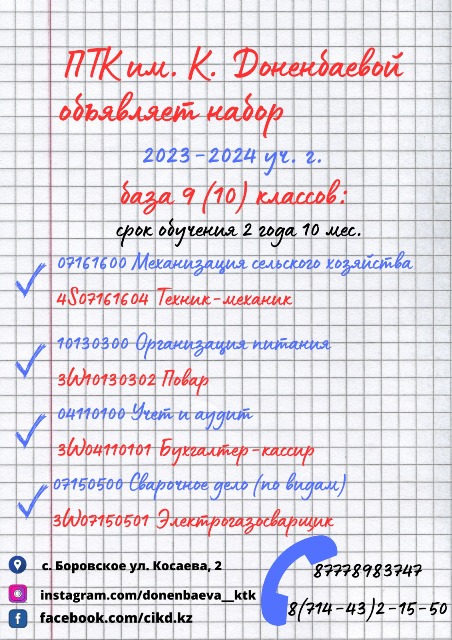 ПТК им. К. Доненбаевой
объявляет набор
2023-2024 уч. г.
база 9 (10) классов:
срок обучения 2 года 10 мес.
07161600 Механизация сельского хозяйства
4S07161604 Техник-механик
10130300 Организация питания
3W10130302 Повар
04110100 Учет и аудит
3W04110101 Бухгалтер-кассир
07150500 Сварочное дело (по видам)
3W07150501 Электрогазосварщик
с. Боровское ул. Косаева, 2
87778983747
instagram.com/donenbaeva__ktk
8(714-43)2-15-50
facebook.com/cikd.kz